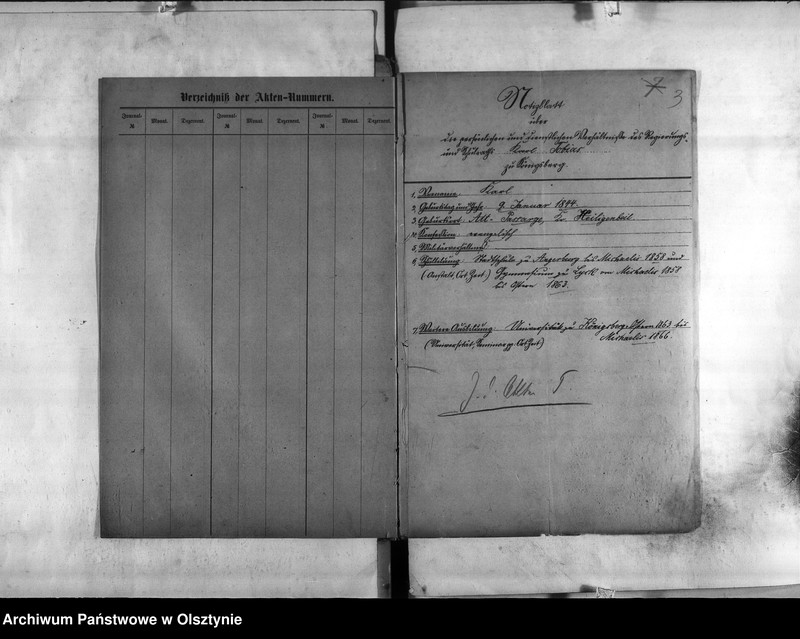 Verzeichniß der Akten-Nummern.
Journal- № Monat. Dezernent. Journal- № Monat. Dezernent. Journal- № Monat. Dezernent.
7 3
Notizblatt
über
die persönlichen und dienstlichen Verhältnisse des Regierungs-
und Schulraths Karl Tobias
zu Königsberg.
1, Vorname Karl
2, Geburtstag und Jahr 9. Januar 1844.
3, Geburtsort: Alt-Passarge, Kr. Heiligenbeil.
4, Konfession evangelisch
5, Militärverhältniß
6, Schulbildung Stadtschule zu Angerburg bis Michaelis 1858 und
(Anstalt, Ort Zeit.) Gymnasium zu Lyck von Michaelis 1858
bis Ostern 1863.
7, Weitere Ausbildung. Universität zu Königsberg Ostern 1863 bis
(Universität, Seminar pp. Ort Zeit) Michaelis 1866.
Archiwum Państwowe w Olsztynie